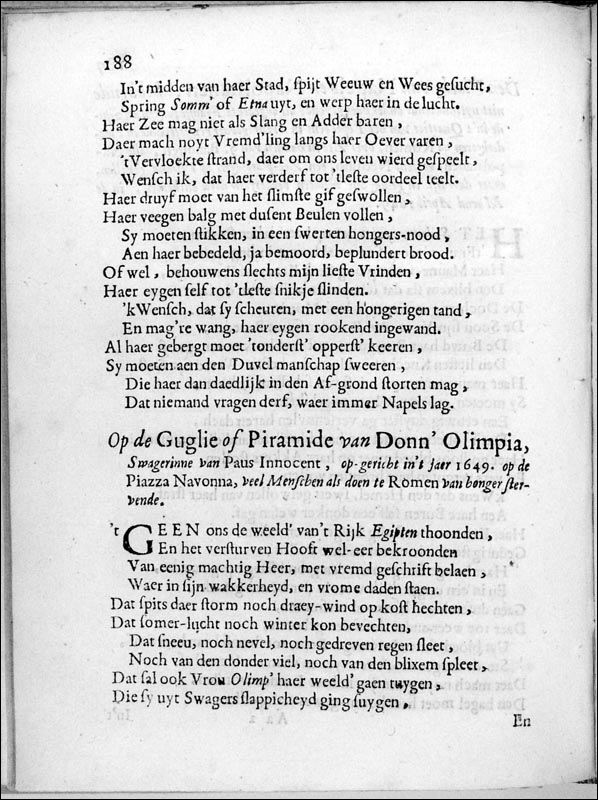 188
In't midden van haer Stad, spijt Weeuw en Wees gesucht,
Spring Somm' of Etna uyt, en werp haer in de lucht.
Haer Zee mag niet als Slang en Adder baren,
Daer mach noyt Vremd'ling langs haer Oever varen,
'tVervloekte strand, daer om ons leven wierd gespeelt,
Wensch ik, dat haer verderf tot 'tleste oordeel teelt.
Haer druyf moet van het slimste gif geswollen,
Haer veegen balg met dusent Beulen vollen,
Sy moeten stikken, in een swerten hongers-nood,
Aen haer bebedeld, ja bemoord, beplundert brood.
Of wel, behouwens slechts mijn liefte Vrinden,
Haer eygen self tot 'tleste snikje slinden.
'kWensch, dat sy scheuren, met een hongerigen tand,
En mag're wang, haer eygen rookend ingewand.
Al haer gebergt moet 'tonderst' opperst' keeren,
Sy moeten aen den Duvel manschap sweeren,
Die haer dan daedlijk in den Af-grond storten mag,
Dat niemand vragen derf, waer immer Napels lag.
Op de Guglie of Piramide van Donn' Olimpia,
Swagerinne van Paus Innocent, op-gericht in't jaer 1649. op de
Piazza Navonna, veel Menschen als doen te Romen van honger ster-
vende.
't GEEN ons de weeld' van't Rijk Egipten thoonden,
En het versturven Hooft wel-eer bekroonden
Van eenig machtig Heer, met vremd geschrift belaen,
Waer in sijn wakkerheyd, en vrome daden staen.
Dat spits daer storm noch draey-wind op kost hechten,
Dat somer-lucht noch winter kon bevechten,
Dat sneeu, noch nevel, noch gedreven regen sleet,
Noch van den donder viel, noch van den blixem spleet,
Dat sal ook Vrou Olimp' haer weeld' gaen tuygen,
Die sy uyt Swagers slappicheyd ging suygen,
En